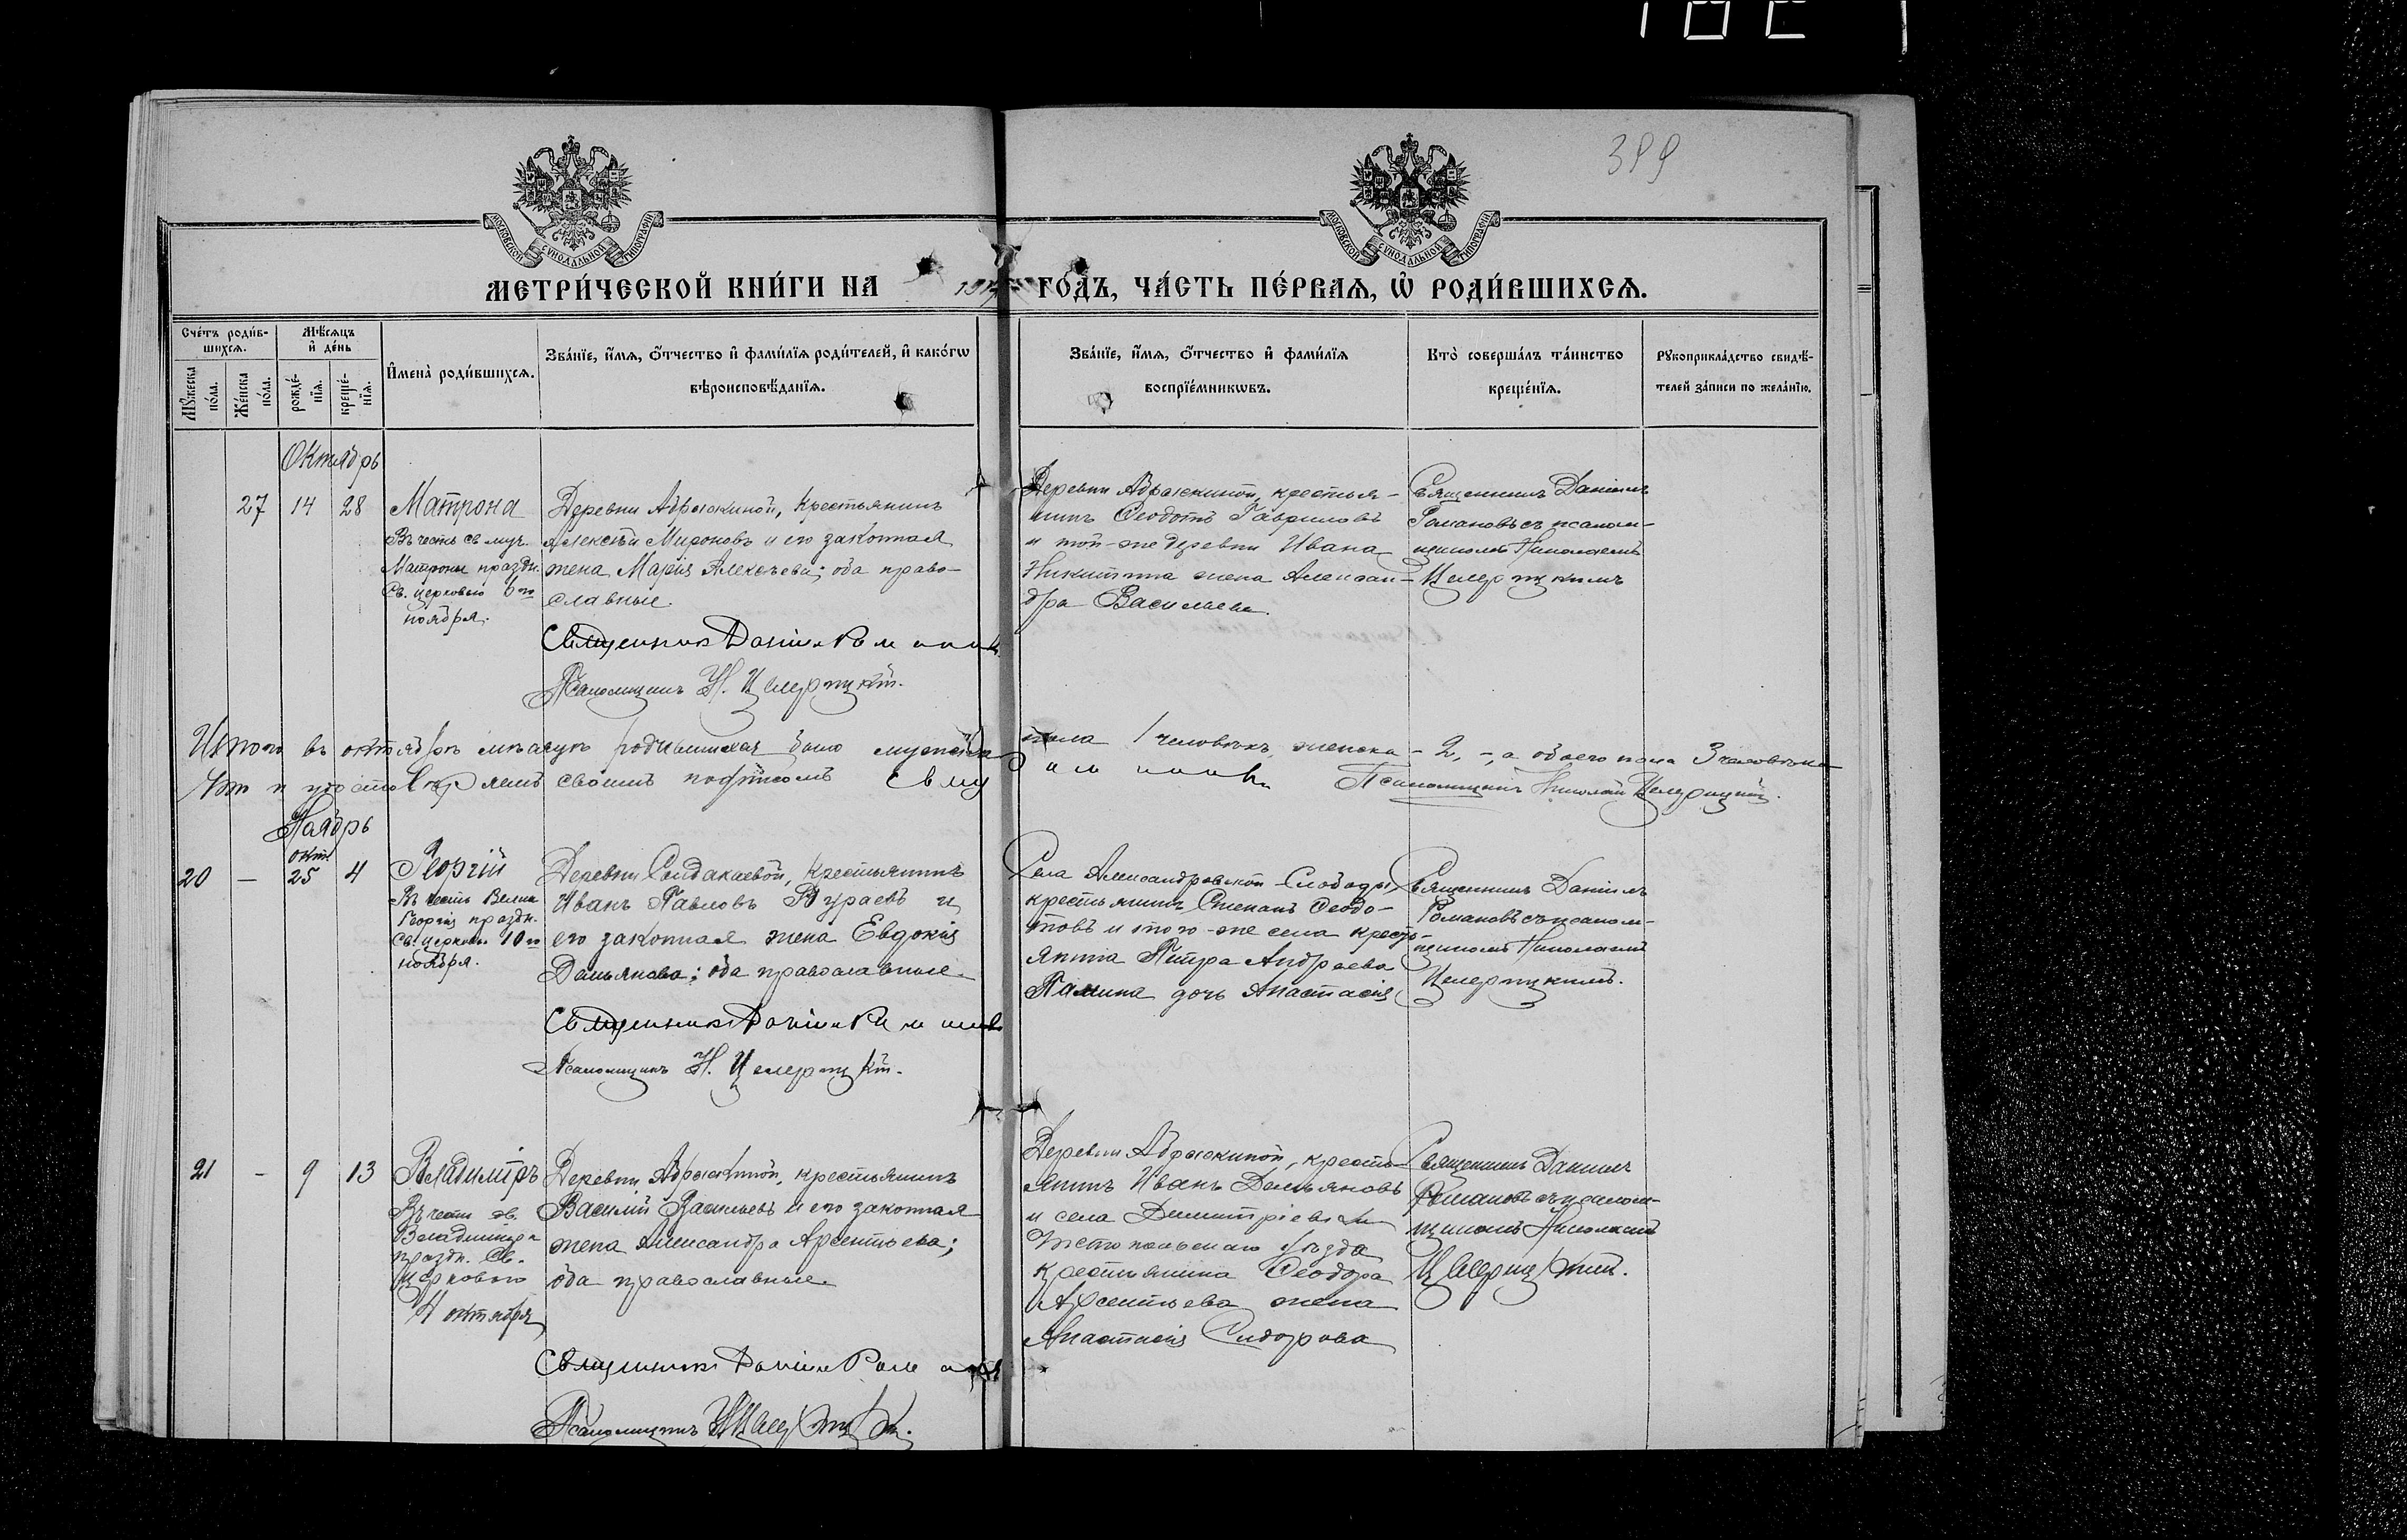 399
МОСКОВСКОЙ СѴНОДАЛЬНОЙ ТИПОГРАФІИ
МОСКОВСКОЙ СѴНОДАЛЬНОЙ ТИПОГРАФІИ
МЕТРИ́ЧЕСКОЙ КНИ́ГИ НА ГО́ДЪ, ЧА́СТЬ ПЕ́РВАѦ, Ѡ҆ РОДИ́ВШИХСѦ.
Сче́тъ роди́в-
шихсѧ.
Мꙋ́жеска по́ла.
Же́нска по́ла.
Мѣ́сѧцъ
и҆ де́нь
рожде́-
нїѧ.
креще́-
нїѧ.
И҆мена̀ роди́вшихсѧ.
Зва́нїе, и҆́мѧ, ѻ҆́тчество и҆ фами́лїѧ роди́телей, и҆ како́гѡ
вѣроисповѣ́данїѧ.
Зва́нїе, и҆́мѧ, ѻ҆́тчество и҆ фами́лїѧ
воспрїе́мникѡвъ.
Кто̀ соверша́лъ та́инство
креще́нїѧ.
Рꙋкоприкла́дство свидѣ́-
телей за́писи по жела́нїю.
Октябрь
27 14 28
Матрона
Въ честь св. муч.
Матроны праздн.
Св. церковью 6го
ноября.
Деревни Абрыскиной, крестьянинъ
Алексѣй Мироновъ и его законная
жена Марія Алексѣева; оба право-
славные.
Священникъ Даніилъ Романовъ
Псаломщикъ Н.
Деревни Абрыскиной, крестья-
нинъ Ѳеодотъ Гавриловъ
и той-же деревни Ивана
Никитина жена Алексан-
дра Васильева.
Священникъ Даніилъ
Романовъ съ псалом-
щикомъ Николаемъ
Итого въ октябрѣ мѣсяцѣ родившихся было мужска пола 1 человѣкъ, женска - 2, -, а обоего пола 3 человѣка
Что и удостовѣряемъ своимъ подписомъ Псаломщикъ Николай
Ноябрь
20 - окт. 25 4
Георгій
Въ честь Велик.
Георгія праздн.
Св. церковью 10го
ноября.
Деревни Солдакаевой, крестьянинъ
Иванъ Павловъ и
его законная жена Евдокія
Дамьянова; оба православные.
Священникъ Даніилъ Романовъ
Псаломщикъ Н.
Села Александровской Слободы,
крестьянинъ Степанъ Ѳеодо-
товъ и того-же села кресть-
янина Петра Андреева
дочь Анастасія
Священникъ Даніилъ
Романовъ съ псалом-
щикомъ Николаемъ
21 - 9 13
Владиміръ
Въ честь св.
Владиміра
праздн. Св.
церковью
4 октября
Деревни Абрыскиной, крестьянинъ
Василій Васильевъ и его законная
жена Александра Арсентьева;
оба православные.
Священникъ Даніилъ Романовъ
Псаломщикъ
Деревни Абрыскиной, кресть-
янинъ Иванъ Демьяновъ
и села
Чистопольскаго уѣзда
крестьянина Ѳеодора
Арсентьева жена
Анастасія Сидорова
Священникъ Даніилъ
Романовъ съ псалом-
щикомъ Николаемъ